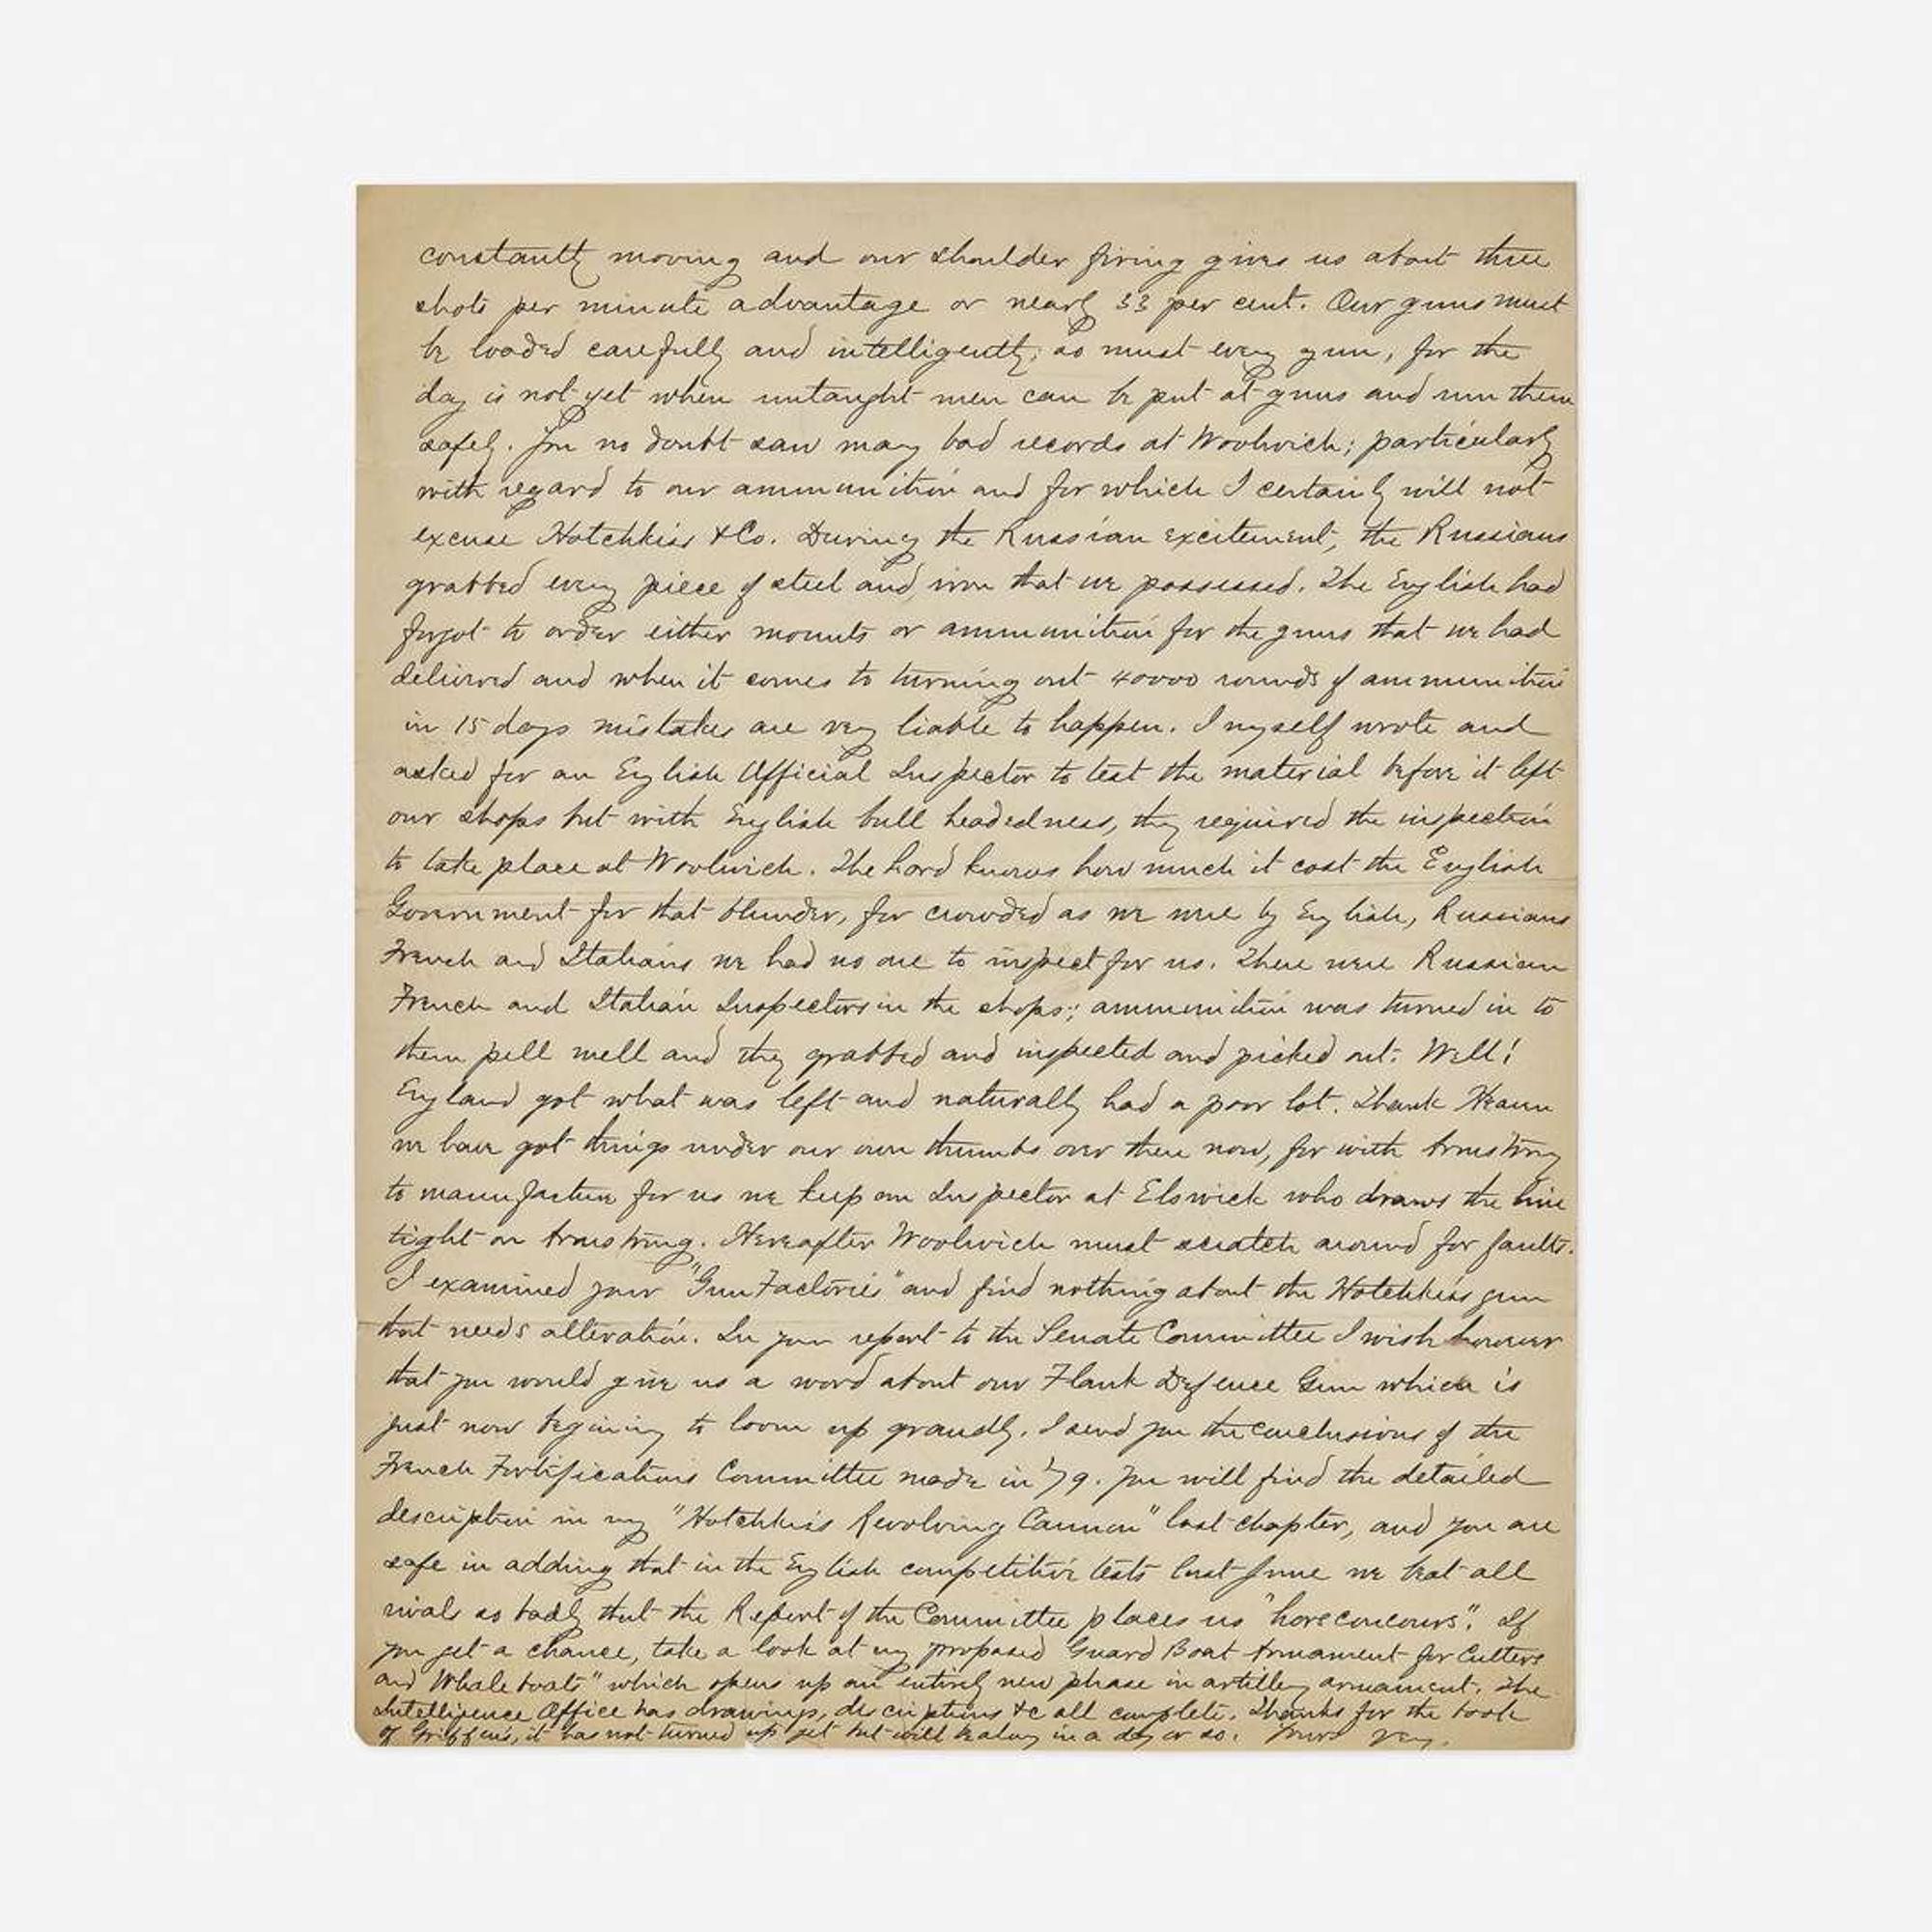 constantly moving and our shoulder firing gives us about three
shots per minute advantage or nearly 33 per cent. Our guns must
be loaded carefully and intelligently; so must every gun, for the
day is not yet when untaught men can be put at guns and run them
safely. You no doubt saw many bad records at Woolwich; particularly
with regard to our ammunition and for which I certainly will not
excuse Hotchkiss & Co. During the Russian excitement, the Russians
grabbed every piece of steel and iron that we possessed. The English had
forgot to order either mounts or ammunition for the guns that we had
delivered and when it comes to turning out 40000 rounds of ammunition
in 15 days mistakes are very liable to happen. I myself wrote and
asked for an English Official Inspector to test the material before it left
our shops but with English bull headedness, they required the inspection
to take place at Woolwich. The Lord knows how much it cost the English
Government for that blunder, for crowded as we were by English, Russians
French and Italians we had no one to inspect for us. There were Russian
French and Italian Inspectors in the shops; ammunition was turned in to
them pell mell and they grabbed and inspected and picked out. Well!
England got what was left and naturally had a poor lot. Thank Heaven
we have got things under our own thumbs over there now, for with Armstrong
to manufacture for us we keep an Inspector at Elswick who draws the line
tight on Armstrong. Hereafter Woolwich must scratch around for faults.
I examined your "Gun Factories" and find nothing about the Hotchkiss gun
that needs alteration. In your report to the Senate Committee I wish however
that you would give us a word about our Flank Defence Gun which is
just now begining to loom up grandly. I send you the conclusions of the
French Fortifications Committee made in '79. You will find the detailed
description in my "Hotchkiss Revolving Cannon" last chapter, and you are
safe in adding that in the English competitive tests last June we beat all
rivals so badly that the Report of the Committee places us "hors concours". If
you get a chance, take a look at my proposed Guard Boat Armament for Cutters
and Whale boats" which opens up an entirely new phase in artillery armament. The
Intelligence Office has drawings, descriptions &c all complete. Thanks for the book
of Griffin's, it has not turned up yet but will be along in a day or so. Yours Very.